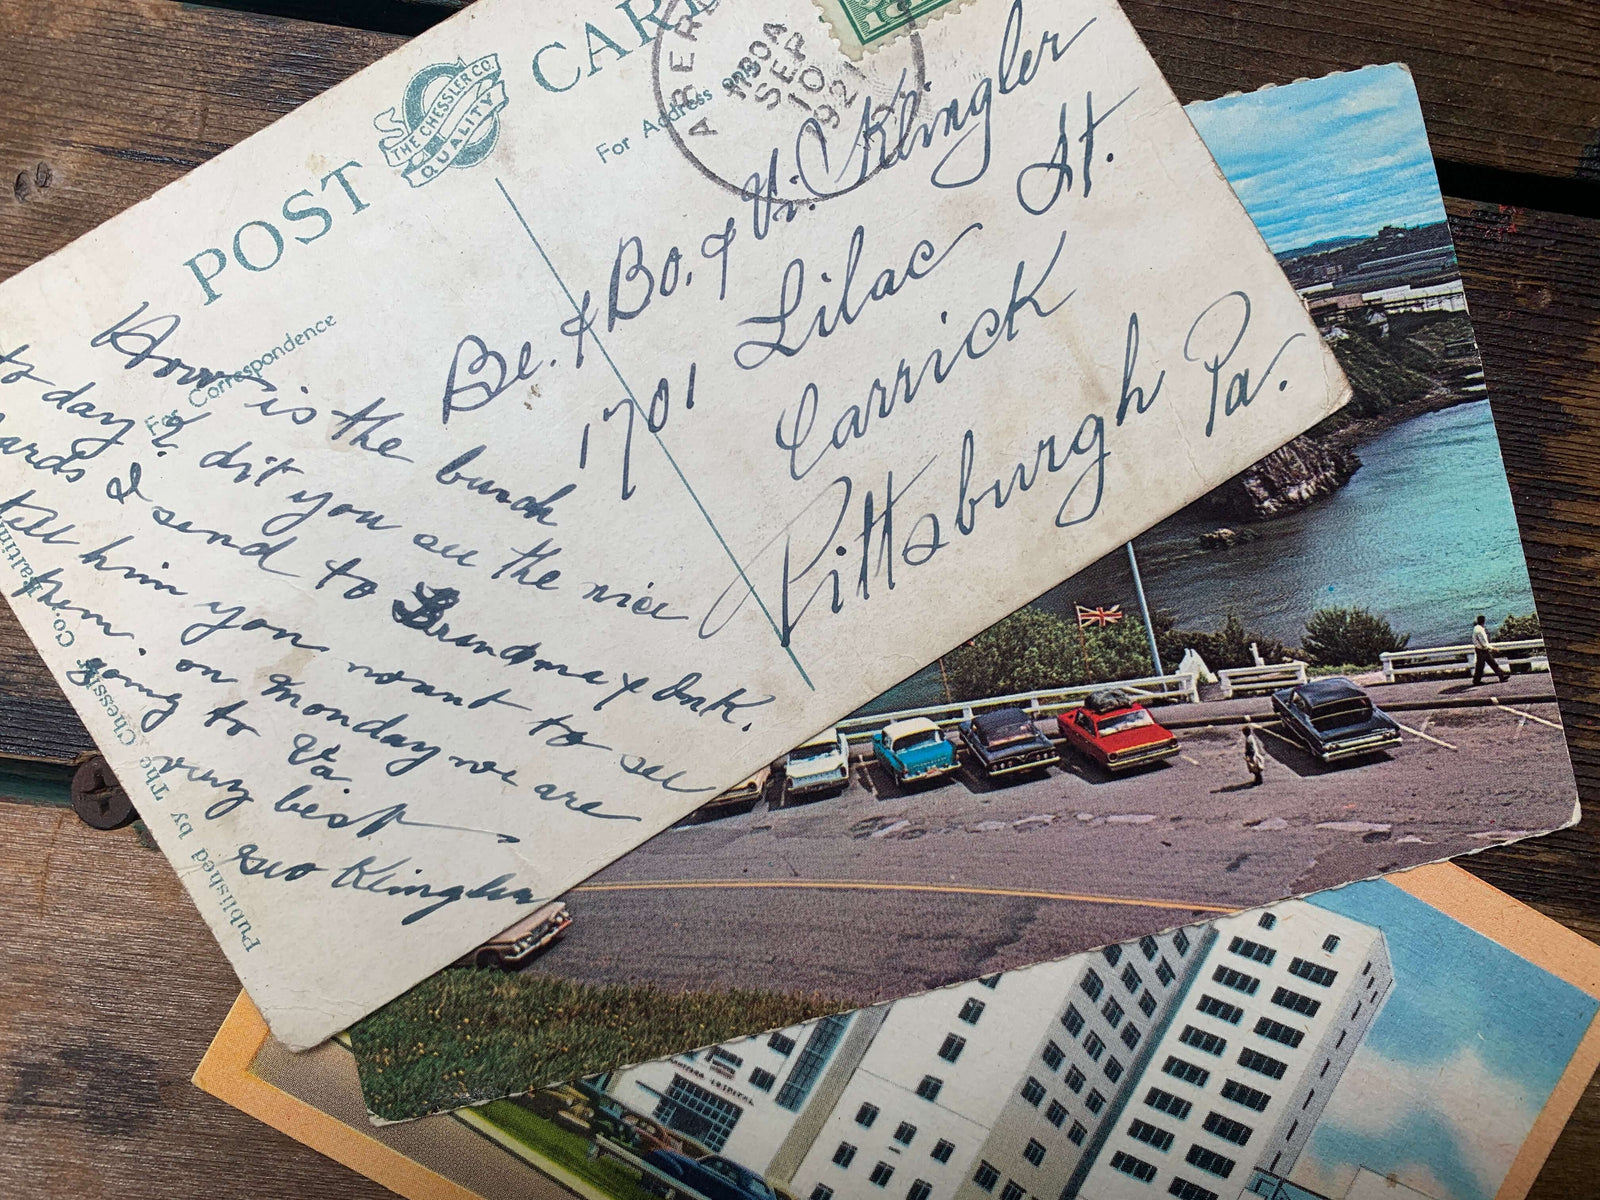 POST CAR
THE CHESSLER CO.
QUALITY
For Correspondence
For Address
ABER
1130A
SEP
10
1921
Be. & Bo. & Vi. Klingler
1701 Lilac St.
Carrick
Pittsburgh Pa.
How is the bunch
to day? dit you see the nice
ards I send to Grandma &
tell him you want to see
them. on Monday we are
going to Va
very best
Geo Klingler
Published by The Chessler Co.,